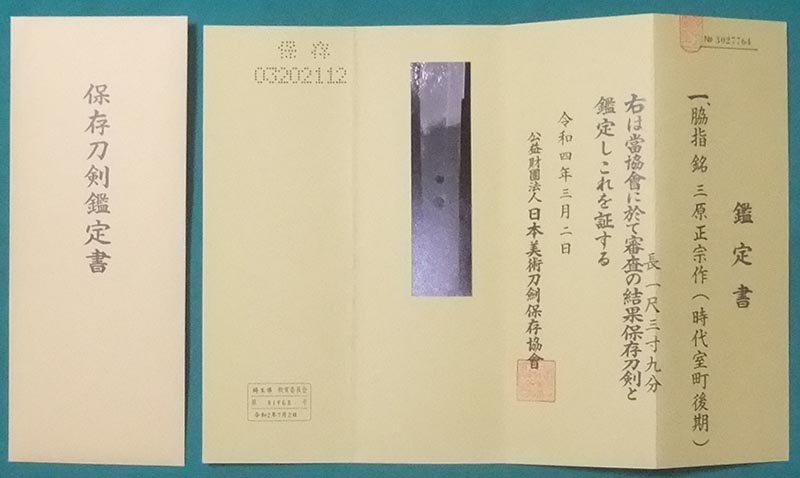 保存刀剣鑑定書
№ 3027764
鑑定書
一、脇指 銘 三原正宗作(時代室町後期)
長一尺三寸九分
右は當協會に於て審査の結果保存刀剣と
鑑定しこれを証する
令和四年三月二日
公益財團法人 日本美術刀劍保存協會
保存
03202112
埼玉県 教育委員会
令和2年7月2日